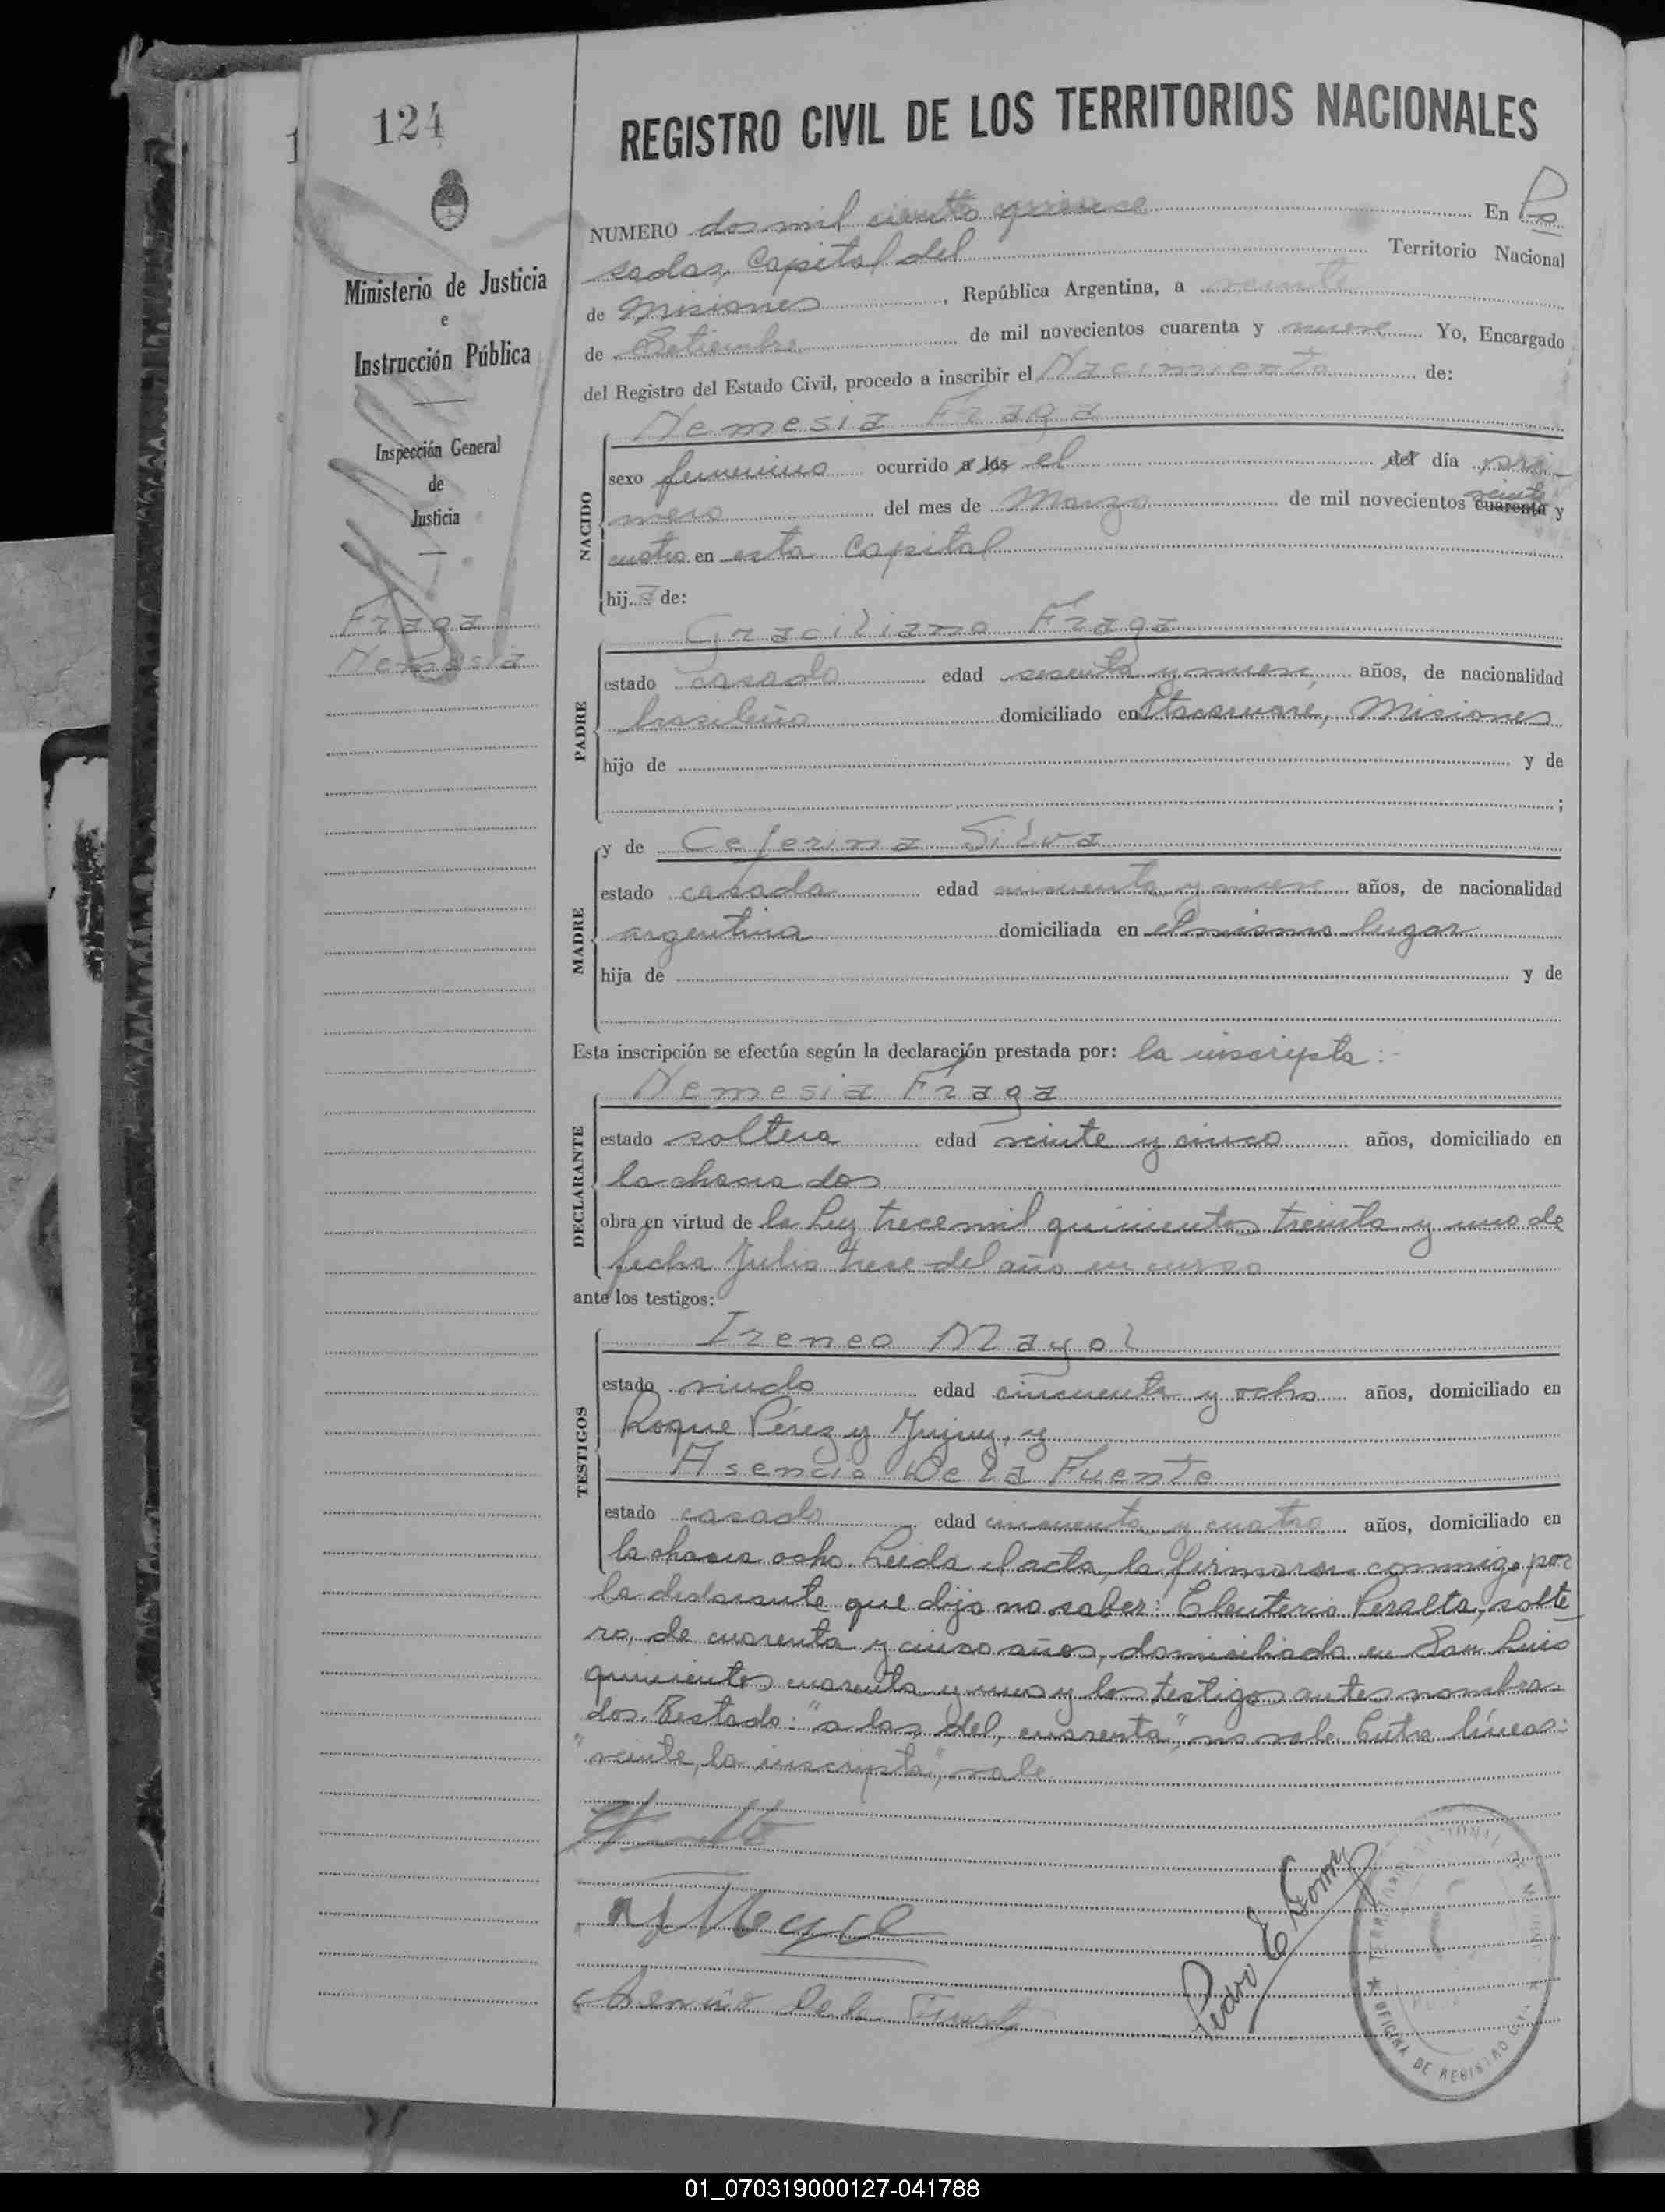 124
Ministerio de Justicia
e
Instrucción Pública
Inspección General
de
Justicia
Fraga
Nemesia
REGISTRO CIVIL DE LOS TERRITORIOS NACIONALES
NUMERO dos mil ciento quince En Po
sadas, Capital del Territorio Nacional
de Misiones, República Argentina, a veinte
de Setiembre de mil novecientos cuarenta y nueve Yo, Encargado
del Registro del Estado Civil, procedo a inscribir el Nacimiento de:
Nemesia Fraga
NACIDO
sexo femenino ocurrido a las el del día pri-
mero del mes de Marzo de mil novecientos cuarenta veinte y
cuatro en esta Capital
hija de:
Graciliano Fraga
PADRE
estado casado edad sesenta y nueve, años, de nacionalidad
brasileña domiciliado en Itacaruaré, Misiones
hijo de y de
;
y de Ceferina Silva
MADRE
estado casada edad cincuenta y nueve años, de nacionalidad
argentina domiciliada en el mismo lugar
hija de y de
Esta inscripción se efectúa según la declaración prestada por: la inscripta:-
Nemesia Fraga
DECLARANTE
estado soltera edad veinte y cinco años, domiciliado en
la chacra dos
obra en virtud de la Ley trece mil quinientos treinta y uno de
fecha Julio trece del año en curso
ante los testigos:
Ireneo Mayol
TESTIGOS
estado viudo edad cincuenta y ocho años, domiciliado en
Roque Pérez y Jujuy, y
Asencio De la Fuente
estado casado edad cincuenta y cuatro años, domiciliado en
la chacra ocho. Leida el acta, la firmaron conmigo por
la declarante que dijo no saber: Eleuterio Peralta, solte
ro, de cuarenta y cinco años, domiciliado en San Luis
quinientos cuarenta y uno y los testigos antes nombra-
dos. Testado: "a las, del, cuarenta", no vale. Entre líneas:
"veinte, la inscripta", vale
Asencio de la Fuente
Pedro E
OFICINA DE REGISTRO CIVIL
01_070319000127-041788